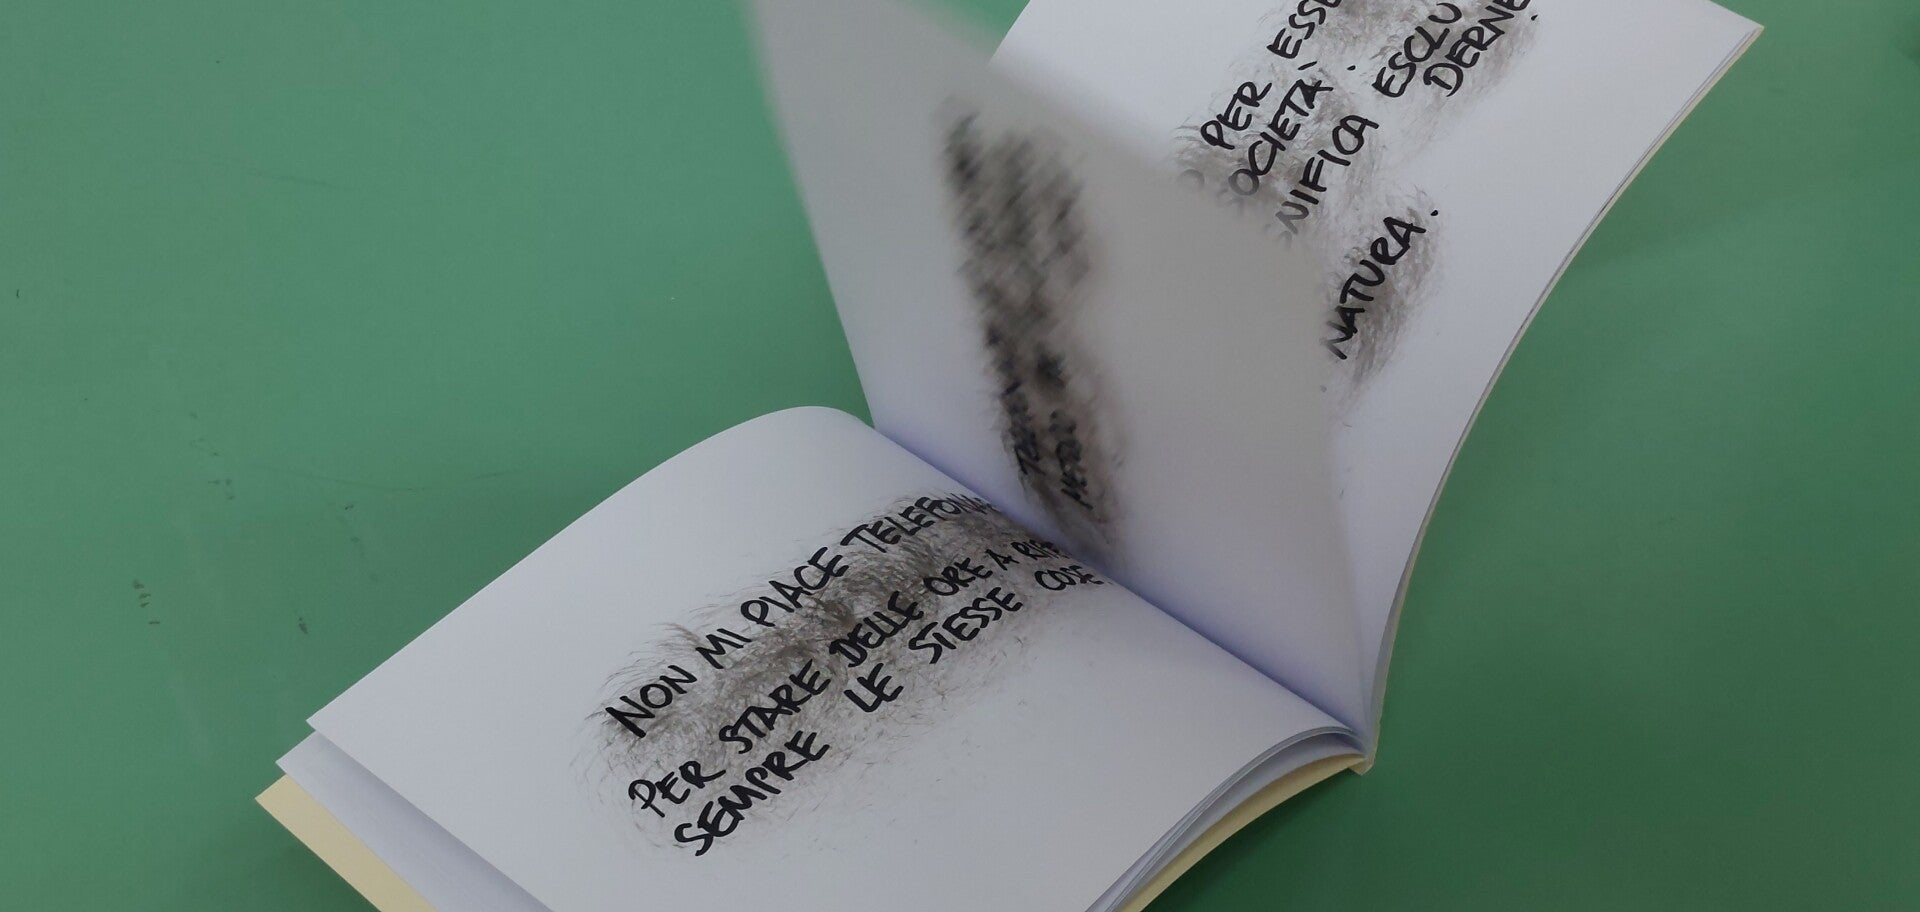 NON MI PIACE TELEFONA
PER STARE DELLE ORE A
SEMPRE LE STESSE COSE.
PER ESSE
OCIETÀ.
NIFICA ESCLU
DERNE.
NATURA.